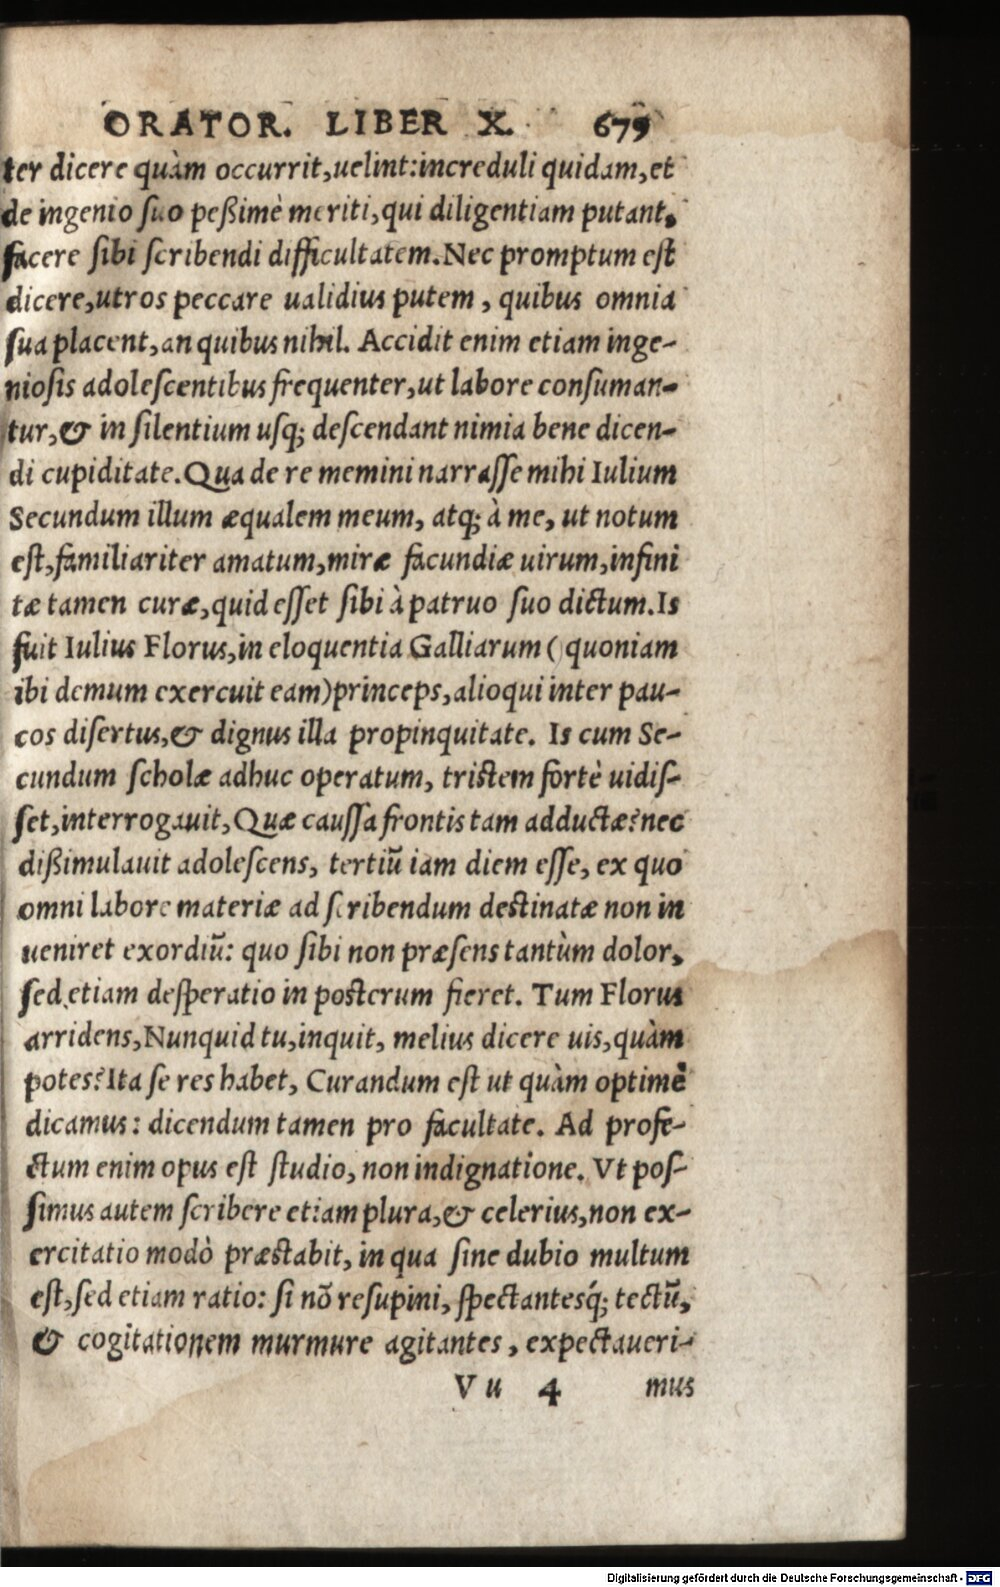 ORATOR. LIBER X. 679
ter dicere quàm occurrit,uelint:increduli quidam,et
de ingenio suo peßimè meriti,qui diligentiam putant,
facere sibi scribendi difficultatem.Nec promptum est
dicere,utros peccare ualidius putem, quibus omnia
sua placent,an quibus nihil. Accidit enim etiam inge-
niosis adolescentibus frequenter,ut labore consuman-
tur,& in silentium usq; descendant nimia bene dicen-
di cupiditate.Qua de re memini narrasse mihi Iulium
Secundum illum æqualem meum, atq; à me, ut notum
est,familiariter amatum,miræ facundiæ uirum,infini
tæ tamen curæ,quid esset sibi à patruo suo dictum.Is
fuit Iulius Florus,in eloquentia Galliarum (quoniam
ibi demum exercuit eam)princeps,alioqui inter pau-
cos disertus,& dignus illa propinquitate. Is cum Se-
cundum scholæ adhuc operatum, tristem fortè uidis-
set,interrogauit,Quæ caussa frontis tam adductæ?nec
dißimulauit adolescens, tertiū iam diem esse, ex quo
omni labore materiæ ad scribendum destinatæ non in
ueniret exordiū: quo sibi non præsens tantùm dolor,
sed etiam desperatio in posterum fieret. Tum Florus
arridens,Nunquid tu,inquit, melius dicere uis,quàm
potes?Ita se res habet, Curandum est ut quàm optimè
dicamus: dicendum tamen pro facultate. Ad profe-
ctum enim opus est studio, non indignatione. Vt pos-
simus autem scribere etiam plura,& celerius,non ex-
ercitatio modò præstabit, in qua sine dubio multum
est,sed etiam ratio: si nō resupini, spectantesq́; tectū,
& cogitationem murmure agitantes, expectaueri-
V u 4 mus
Digitalisierung gefördert durch die Deutsche Forschungsgemeinschaft - DFG